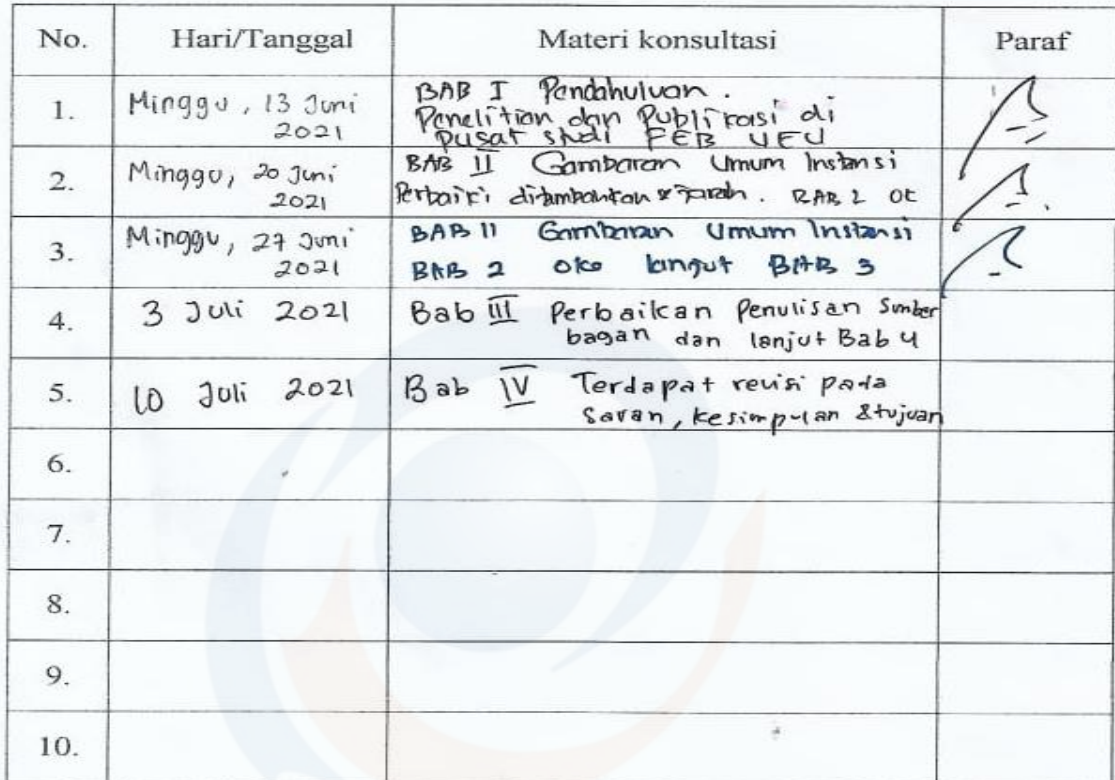 No. Hari/Tanggal Materi konsultasi Paraf
1. Minggu, 13 Juni 2021 BAB I Pendahuluan.
Penelitian dan Publikasi di
Pusat studi FEB UEU
2. Minggu, 20 Juni 2021 BAB II Gambaran Umum Instansi
Perbaiki ditambahkan sejarah. BAB 2 OK
3. Minggu, 27 Juni 2021 BAB II Gambaran Umum Instansi
BAB 2 oke langut BAB 3
4. 3 Juli 2021 Bab III Perbaikan Penulisan Sumber
bagan dan lanjut Bab 4
5. 10 Juli 2021 Bab IV Terdapat revisi pada
Saran, kesimpulan & tujuan
6.
7.
8.
9.
10.